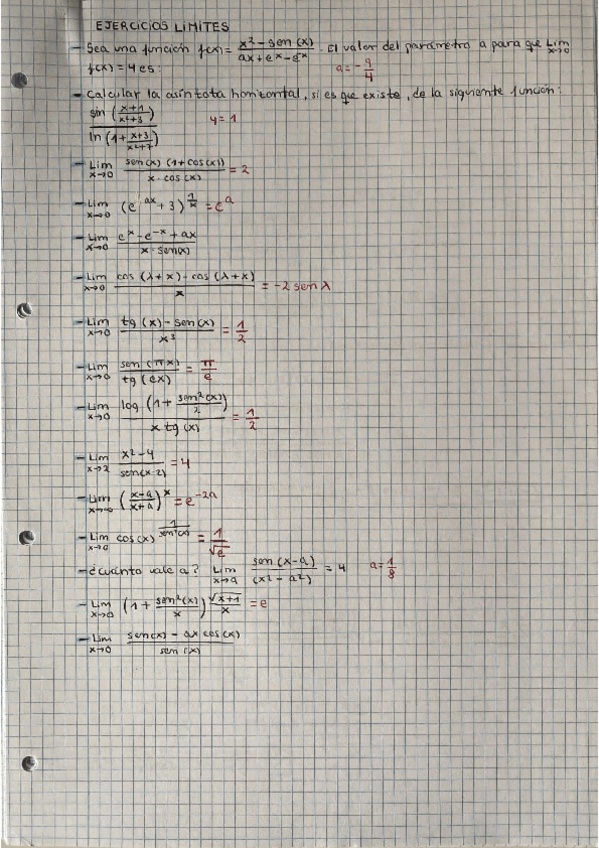 EJERCICIOS LÍMITES
- Sea una función f(x) = (x² - sen(x))/(ax + e^x - e^-x). El valor del parámetro a para que Lim x→0
f(x) = 4 es: a = -9/4
- Calcular la asíntota horizontal, si es que existe, de la siguiente función:
sin((x+1)/(x²+3)) / ln(1 + (x+3)/(x²+7)) y = 1
- Lim x→0 (sen(x) (1+cos(x)))/(x · cos(x)) = 2
- Lim x→0 (e^ax + 3)^(1/x) = e^a
- Lim x→0 (e^x - e^-x + ax)/(x · sen(x))
- Lim x→0 (cos(λ+x) - cos(λ+x))/x = -2 sen λ
- Lim x→0 (tg(x) - sen(x))/x³ = 1/2
- Lim x→0 sen(πx)/tg(ex) = π/e
- Lim x→0 log(1 + sen²(x)/2)/(x tg(x)) = 1/2
- Lim x→2 (x² - 4)/sen(x-2) = 4
- Lim x→∞ ((x-a)/(x+a))^x = e^-2a
- Lim x→0 cos(x)^(1/sen²(x)) = 1/√e
- ¿Cuánto vale a? Lim x→a sen(x-a)/(x² - a²) = 4 a = 1/8
- Lim x→0 (1 + sen²(x)/x)^(√(x+1)/x) = e
- Lim x→0 (sen(x) - ax cos(x))/sen(x)